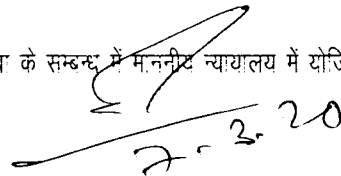 के सम्बन्ध में माननीय न्यायालय में योजि
7.3.20